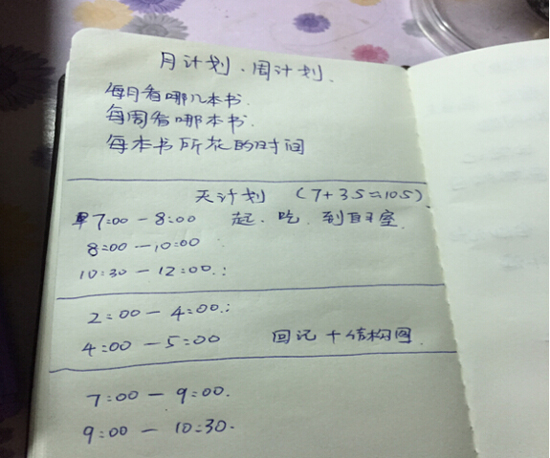 月计划、周计划、
每月看哪几本书.
每周看哪本书.
每本书所花的时间
天计划 (7+3.5=10.5).
早7:00－8:00 起、吃、到自习室.
8:00－10:00
10:30－12:00.:
2:00－4:00.:
4:00－5:00 回记+结构图.
7:00－9:00.
9:00－10:30.